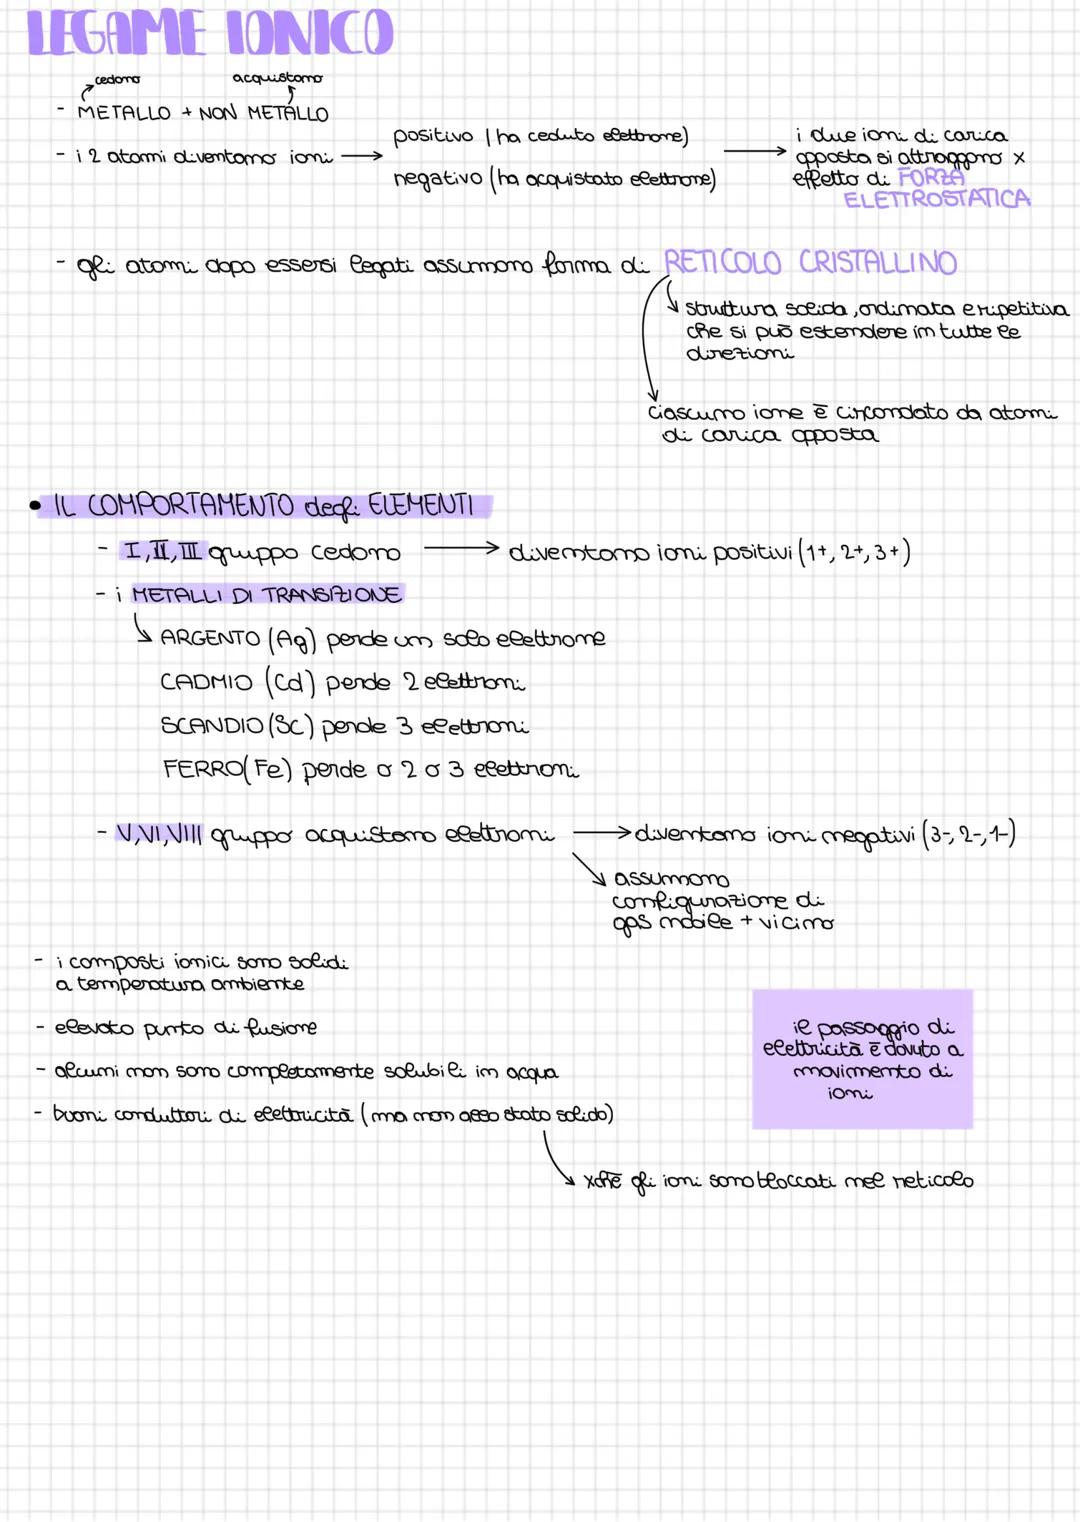 LEGAME IONICO
cedono acquistano
- METALLO + NON METALLO
- i 2 atomi diventano ioni → positivo (ha ceduto elettrone)
negativo (ha acquistato elettrone)
→ i due ioni di carica
opposta si attraggono x
effetto di FORZA
ELETTROSTATICA
- gli atomi dopo essersi legati assumono forma di RETICOLO CRISTALLINO
struttura solida, ordinata e ripetitiva
che si può estendere in tutte le
direzioni
ciascuno ione è circondato da atomi
di carica opposta
• IL COMPORTAMENTO degli ELEMENTI
- I, II, III gruppo cedono → diventano ioni positivi (1+, 2+, 3+)
- i METALLI DI TRANSIZIONE
ARGENTO (Ag) perde un solo elettrone
CADMIO (Cd) perde 2 elettroni
SCANDIO (Sc) perde 3 elettroni
FERRO (Fe) perde o 2 o 3 elettroni
- V, VI, VIII gruppo acquistano elettroni → diventano ioni negativi (3-, 2-, 1-)
assumono
configurazione di
gas nobile + vicino
- i composti ionici sono solidi
a temperatura ambiente
- elevato punto di fusione
- alcuni non sono completamente solubili in acqua
- buoni conduttori di elettricità (ma non allo stato solido)
xché gli ioni sono bloccati nel reticolo
il passaggio di
elettricità è dovuto a
movimento di
ioni